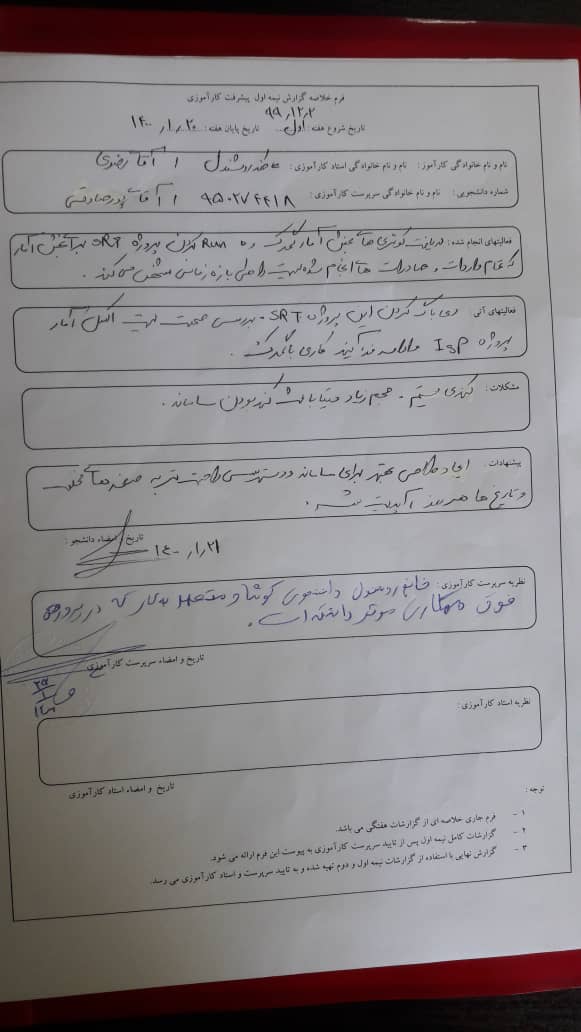 فرم خلاصه گزارش نیمه اول پیشرفت کارآموزی
تاریخ شروع هفته اول: ۹۹٫۱۲٫۲ تاریخ پایان هفته: ۱۴۰۰٫۱٫۲۰
نام و نام خانوادگی کارآموز: نام و نام خانوادگی استاد کارآموزی: آقای رضوی
شماره دانشجویی: نام و نام خانوادگی سرپرست کارآموزی: آقای پورصادقی
فعالیتهای انجام شده: دریافت کوئری های بخش آمار گمرک و Run کردن پروژه SRT برای بخش آمار
که تمام واردات و صادرات های انجام شده داخل بازه زمانی مشخص می کند.
فعالیتهای آتی: دی باگ کردن این پروژه SRT. بررسی صحت آمار
پروژه ISP و ادامه فرآیند کاری با گمرک.
مشکلات: کندی سیستم. حجم زیاد دیتا باعث کند بودن سامانه.
پیشنهادات: ایجاد طراحی بهتر برای سامانه و دسترسی راحت تر به صفحه های مختلف
و تاریخ ها هر روز آپدیت شه.
تاریخ و امضاء دانشجو:
۱۴۰۰٫۱٫۲۱
نظریه سرپرست کارآموزی: خانم دانشجوی کوشا و متعهد به کار که در پروژه
فوق همکاری موثر داشته است.
تاریخ و امضاء سرپرست کارآموزی
نظریه استاد کارآموزی:
تاریخ و امضاء استاد کارآموزی
توجه:
۱- فرم جاری خلاصه ای از گزارشات هفتگی می باشد.
۲- گزارشات کامل نیمه اول پس از تایید سرپرست کارآموزی به پیوست این فرم ارائه می شود.
۳- گزارش نهایی با استفاده از گزارشات نیمه اول و دوم تهیه شده و به تایید سرپرست و استاد کارآموزی می رسد.